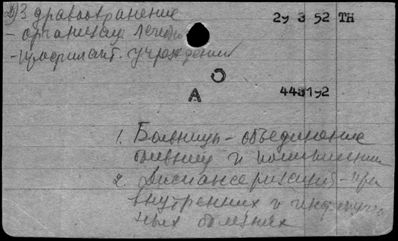 Здравоохранение 29 3 52 TH
- организац. лечебно
- профилакт. учреждений
A 448192
1. Больницы - объединение
больниц и поликлиник
2. Диспансеризация - при
внутренних и инфекцион
ных болезнях